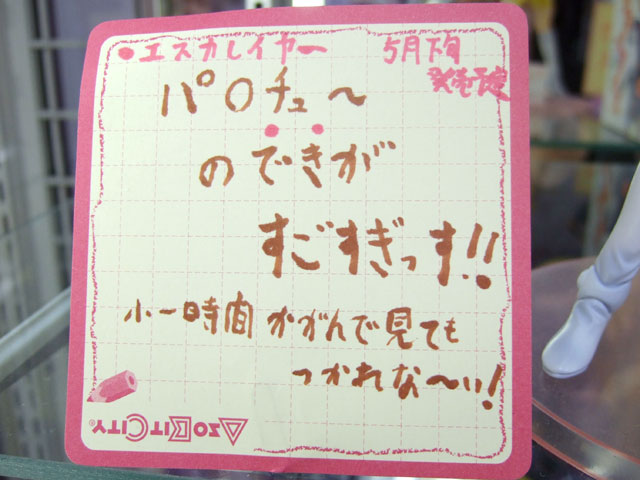 ●エスカレイヤー 5月下旬
発売予定
パ○チュ〜
のできが
すごすぎっす!!
小一時間 かがんで見ても
つかれな〜い!
AZOBITCITY®